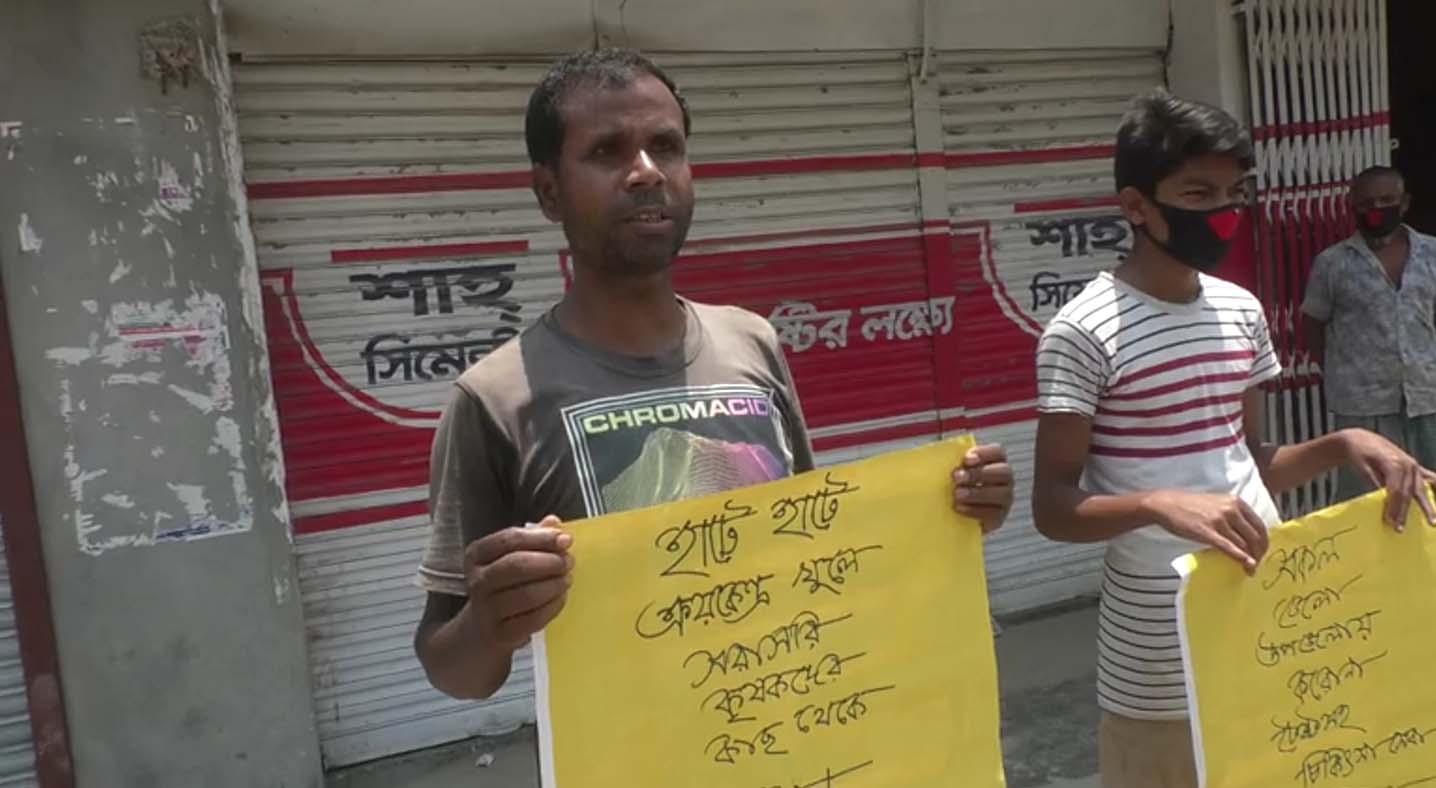 শাহ্
সিমেন্ট
ষ্টির লক্ষ্যে
শাহ্
সিমে
CHROMACID
হাটে হাটে
ক্রয়কেন্দ্র খুলে
সরাসরি
কৃষকদের
কাছ থেকে
সকল
জেলা
উপজেলায়
করোনা
টেস্টসহ
চিকিৎসা সেবা